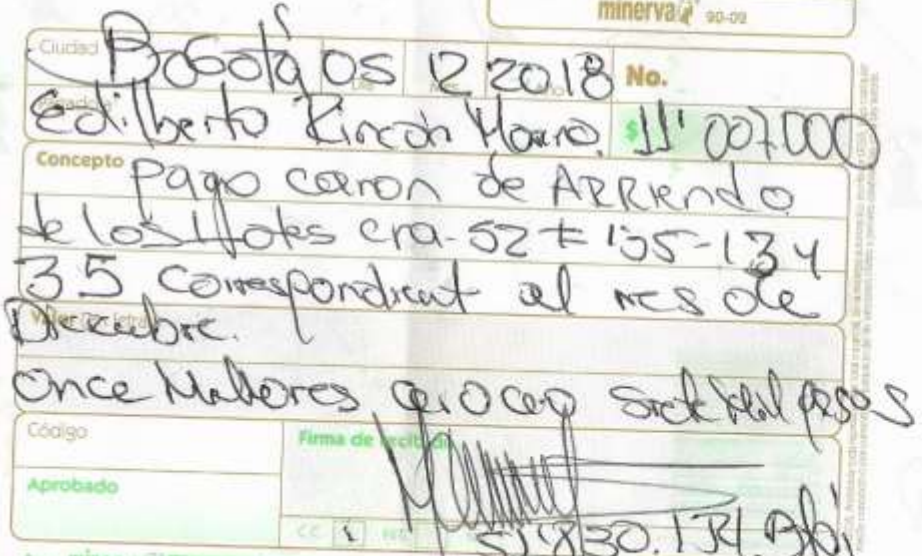 minerva 90-09
Ciudad Bogotá 05 12 2018 No.
Edilberto Rincón $ 11'007.000
Concepto Pago canon de ARRIENDO
de los lotes cra-52 # 135-13 y
35 correspondient al mes de
Diciembre.
Once Millones cero cero siete Mil pesos
Código
Firma de recibido
Aprobado
CC